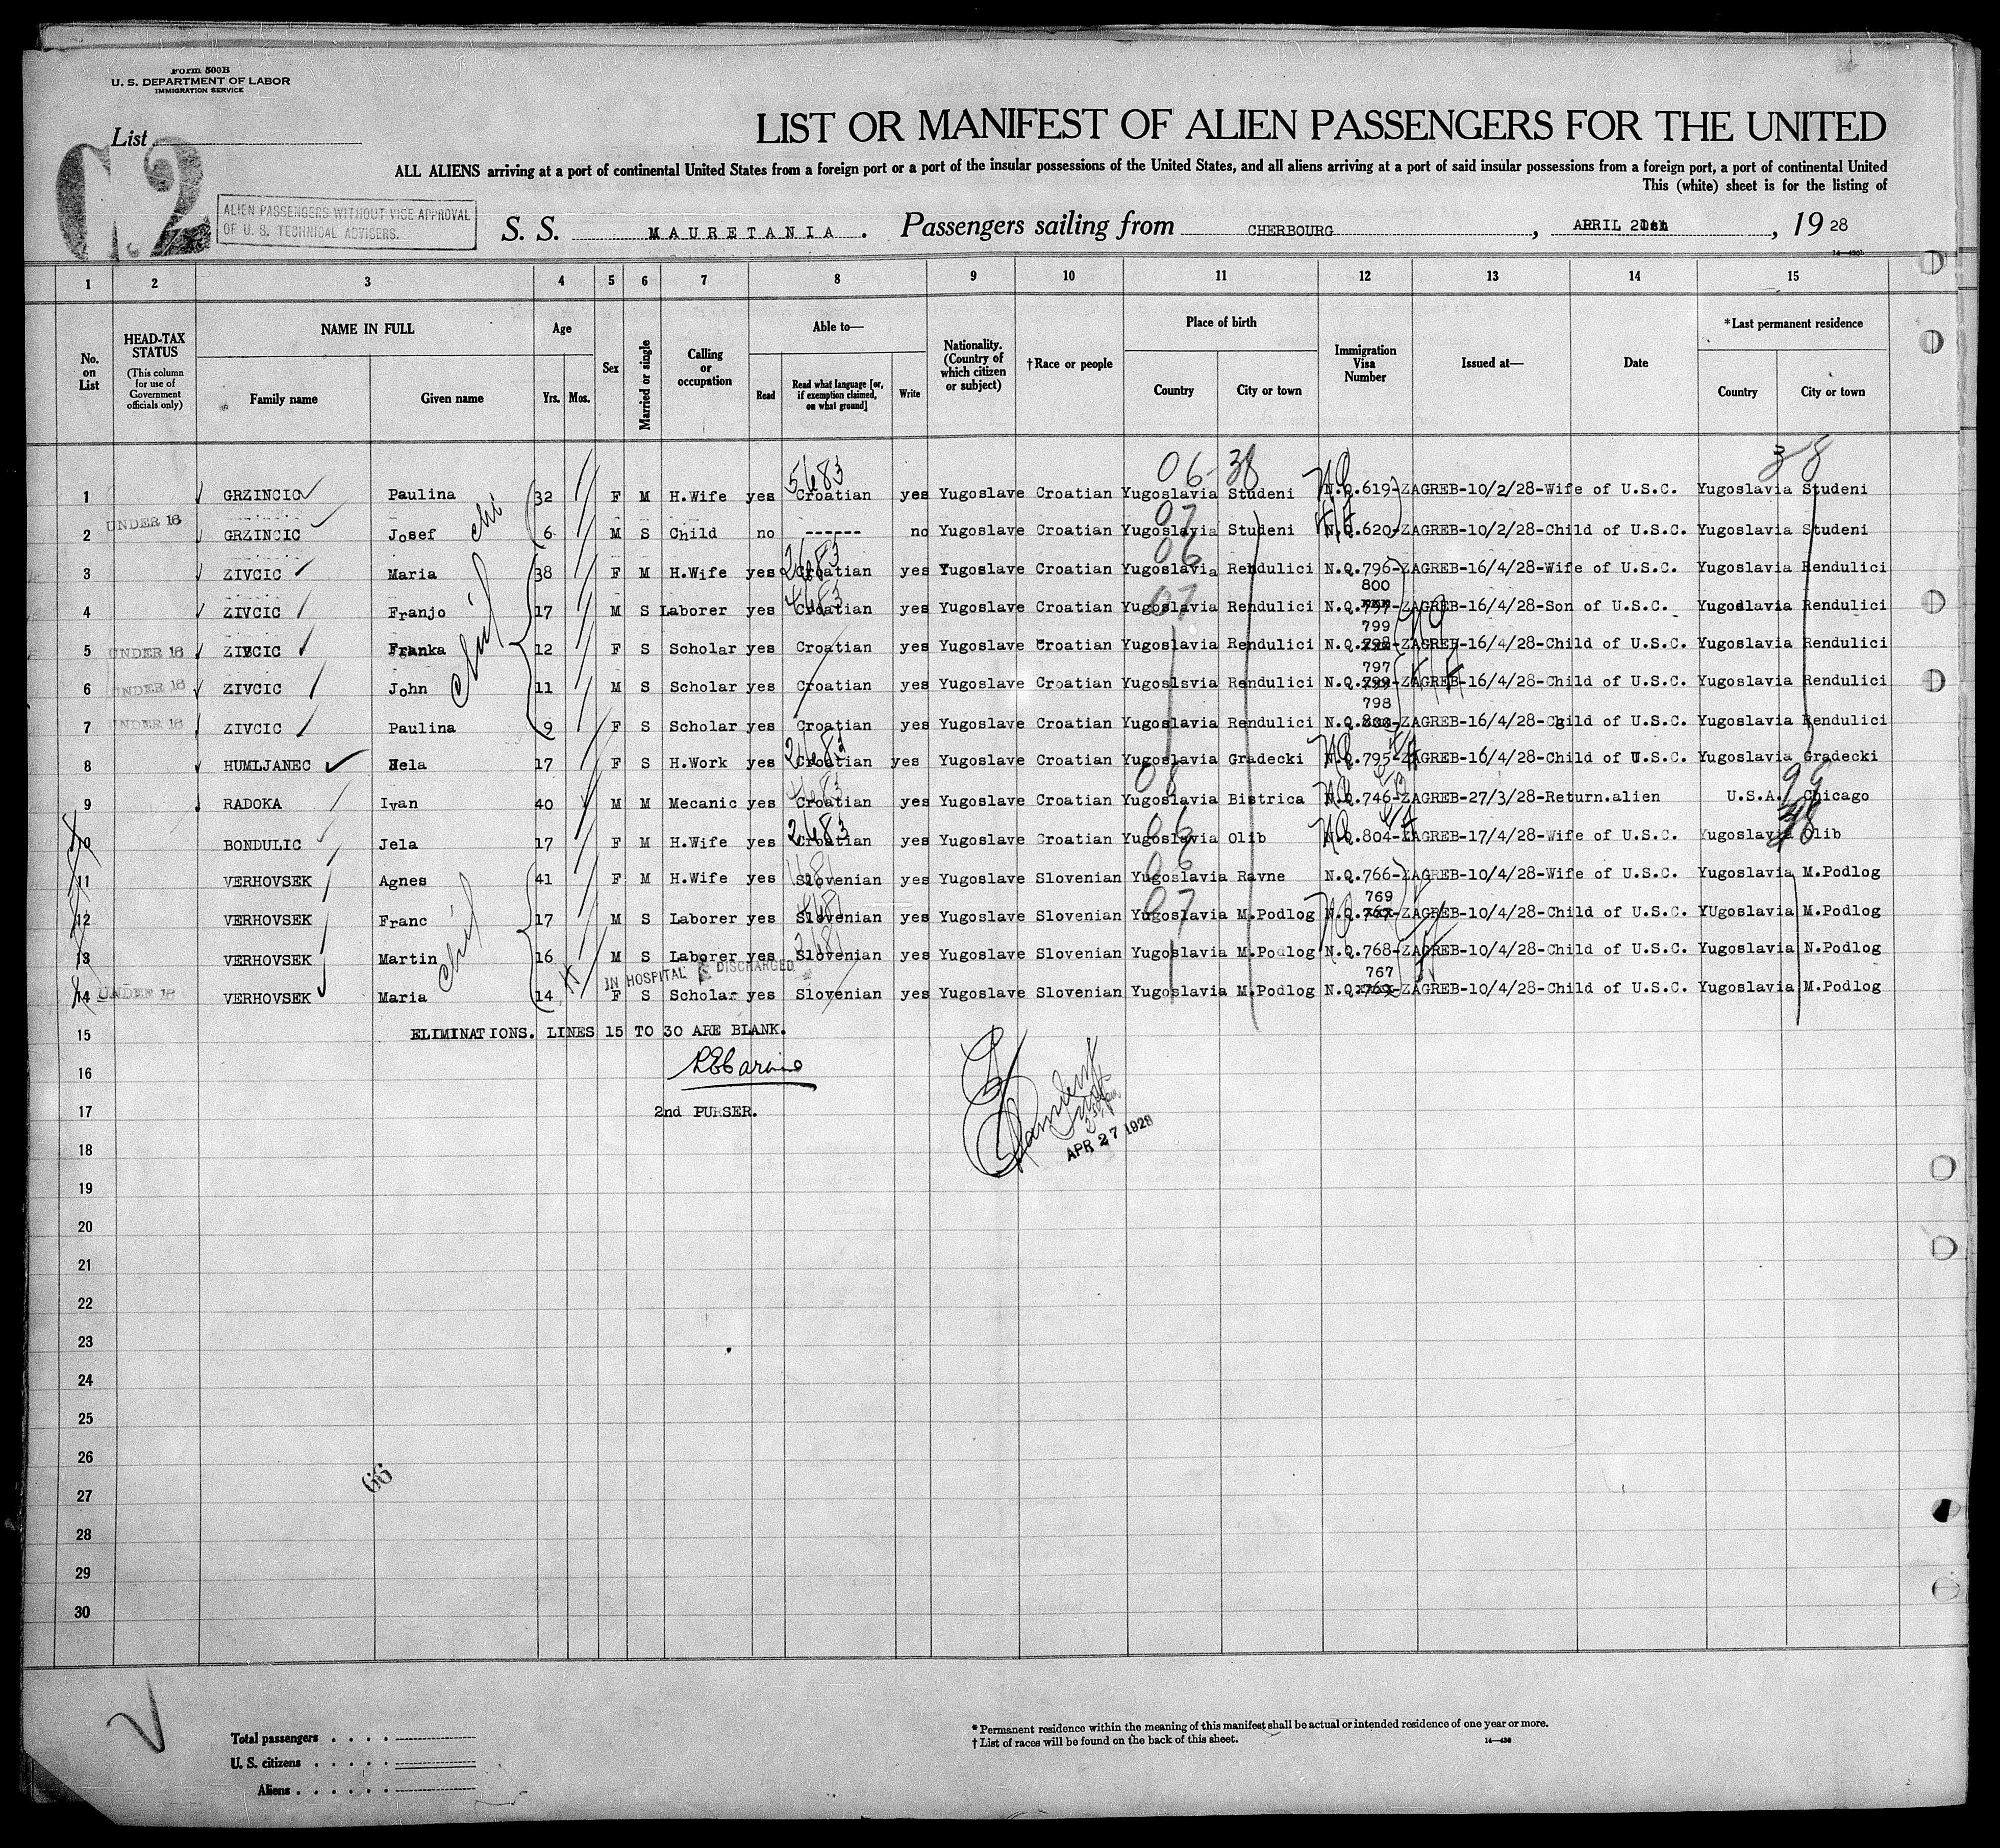 Form 500B
U. S. DEPARTMENT OF LABOR
IMMIGRATION SERVICE
List
C.2
LIST OR MANIFEST OF ALIEN PASSENGERS FOR THE UNITED
ALL ALIENS arriving at a port of continental United States from a foreign port or a port of the insular possessions of the United States, and all aliens arriving at a port of said insular possessions from a foreign port, a port of continental United
This (white) sheet is for the listing of
ALIEN PASSENGERS WITHOUT VISE APPROVAL
OF U. S. TECHNICAL ADVISERS.
S. S. MAURETANIA. Passengers sailing from CHERBOURG, APRIL, 19 28
14—430b
1 2 3 4 5 6 7 8 9 10 11 12 13 14 15
No. on List
HEAD-TAX STATUS (This column for use of Government officials only)
NAME IN FULL
Family name Given name
Age
Yrs. Mos.
Sex
Married or single
Calling or occupation
Able to—
Read
Read what language [or, if exemption claimed, on what ground]
Write
Nationality. (Country of which citizen or subject)
†Race or people
Place of birth
Country City or town
Immigration Visa Number
Issued at—
Date
*Last permanent residence
Country City or town
5683 06 38 38
1 GRZINCIC Paulina 32 F M H.Wife yes Croatian yes Yugoslave Croatian Yugoslavia Studeni N.Q.619-ZAGREB-10/2/28-Wife of U.S.C. Yugoslavia Studeni
UNDER 16 chi 07
2 GRZINCIC Josef 6 M S Child no ------ no Yugoslave Croatian Yugoslavia Studeni N.Q.620-ZAGREB-10/2/28-Child of U.S.C. Yugoslavia Studeni
2683 06
3 ZIVCIC Maria 38 F M H.Wife yes Croatian yes Yugoslave Croatian Yugoslavia Rendulici N.Q.796-ZAGREB-16/4/28-Wife of U.S.C. Yugoslavia Rendulici
4683 07 800
4 ZIVCIC Franjo 17 M S Laborer yes Croatian yes Yugoslave Croatian Yugoslavia Rendulici N.Q.797-ZAGREB-16/4/28-Son of U.S.C. Yugodlavia Rendulici
799
5 UNDER 16 ZIVCIC Franka 12 F S Scholar yes Croatian yes Yugoslave Croatian Yugoslavia Rendulici N.Q.798-ZAGREB-16/4/28-Child of U.S.C. Yugoslavia Rendulici
797
6 UNDER 16 ZIVCIC John 11 M S Scholar yes Croatian yes Yugoslave Croatian Yugoslsvia Rendulici N.Q.799-ZAGREB-16/4/28-Child of U.S.C. Yugoslavia Rendulici
798
7 UNDER 16 ZIVCIC Paulina 9 F S Scholar yes Croatian yes Yugoslave Croatian Yugoslavia Rendulici N.Q.800-ZAGREB-16/4/28-Child of U.S.C. Yugoslavia Rendulici
2683
8 HUMLJANEC Hela 17 F S H.Work yes Croatian yes Yugoslave Croatian Yugoslavia Gradecki N.Q.795-ZAGREB-16/4/28-Child of U.S.C. Yugoslavia Gradecki
4683 08 99
9 RADOKA Ivan 40 M M Mecanic yes Croatian yes Yugoslave Croatian Yugoslavia Bistrica N.Q.746-ZAGREB-27/3/28-Return.alien U.S.A. Chicago
2683 06 38
10 BONDULIC Jela 17 F M H.Wife yes Croatian yes Yugoslave Croatian Yugoslavia Olib N.Q.804-ZAGREB-17/4/28-Wife of U.S.C. Yugoslavia Olib
06
11 VERHOVSEK Agnes 41 F M H.Wife yes Slovenian yes Yugoslave Slovenian Yugoslavia Ravne N.Q.766-ZAGREB-10/4/28-Wife of U.S.C. Yugoslavia M.Podlog
07 769
12 VERHOVSEK Franc 17 M S Laborer yes Slovenian yes Yugoslave Slovenian Yugoslavia M.Podlog N.Q.767-ZAGREB-10/4/28-Child of U.S.C. YUgoslavia M.Podlog
3681
13 VERHOVSEK Martin 16 M S Laborer yes Slovenian yes Yugoslave Slovenian Yugoslavia M.Podlog N.Q.768-ZAGREB-10/4/28-Child of U.S.C. Yugoslavia N.Podlog
IN HOSPITAL & DISCHARGED 767
14 UNDER 16 VERHOVSEK Maria 14 F S Scholar yes Slovenian yes Yugoslave Slovenian Yugoslavia M.Podlog N.Q.769-ZAGREB-10/4/28-Child of U.S.C. Yugoslavia M.Podlog
15 ELIMINATIONS. LINES 15 TO 30 ARE BLANK.
16
17 2nd PURSER.
APR 27 1928
18
19
20
21
22
23
24
25
26
66
27
28
29
30
Total passengers
U. S. citizens
Aliens
* Permanent residence within the meaning of this manifest shall be actual or intended residence of one year or more.
† List of races will be found on the back of this sheet.
14—430